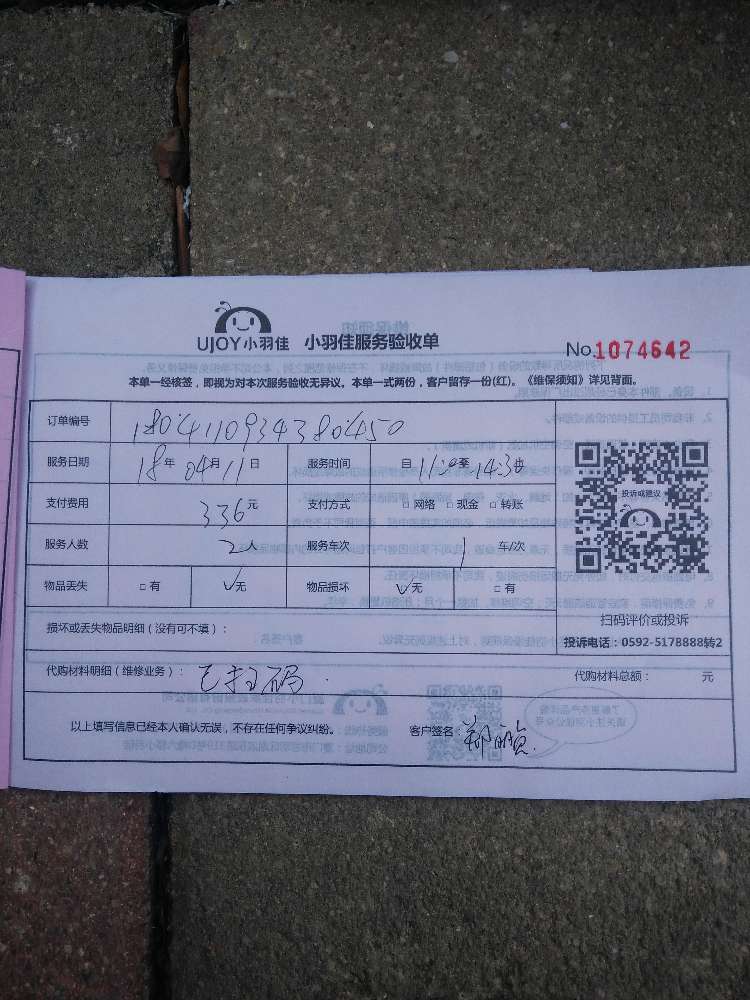 UJOY小羽佳 小羽佳服务验收单 No.1074642
本单一经核签，即视为对本次服务验收无异议。本单一式两份，客户留存一份(红)。《维保须知》详见背面。
订单编号 1804110934380450
服务日期 18年04月11日 服务时间 自11:00至14:30
支付费用 336元 支付方式 □网络 □现金 □转账
服务人数 2人 服务车次 1车/次
物品丢失 □有 √无 物品损坏 √无 □有
投诉或建议
扫码评价或投诉
投诉电话：0592-5178888转2
损坏或丢失物品明细（没有可不填）：
代购材料明细（维修业务）：已扫码 代购材料总额： 元
以上填写信息已经本人确认无误，不存在任何争议纠纷。 客户签名：